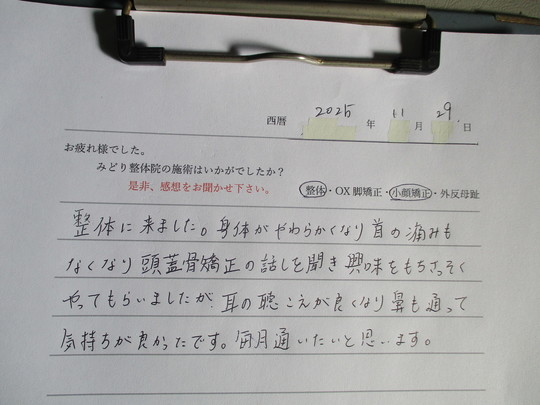 西暦 2025 年 11 月 29 日
お疲れ様でした。
みどり整体院の施術はいかがでしたか?
是非、感想をお聞かせ下さい。
整体・OX脚矯正・小顔矯正・外反母趾
整体に来ました。身体がやわらかくなり首の痛みも
なくなり頭蓋骨矯正の話しを聞き興味をもちさっそく
やってもらいましたが、耳の聴こえが良くなり鼻も通って
気持ちが良かったです。毎月通いたいと思います。